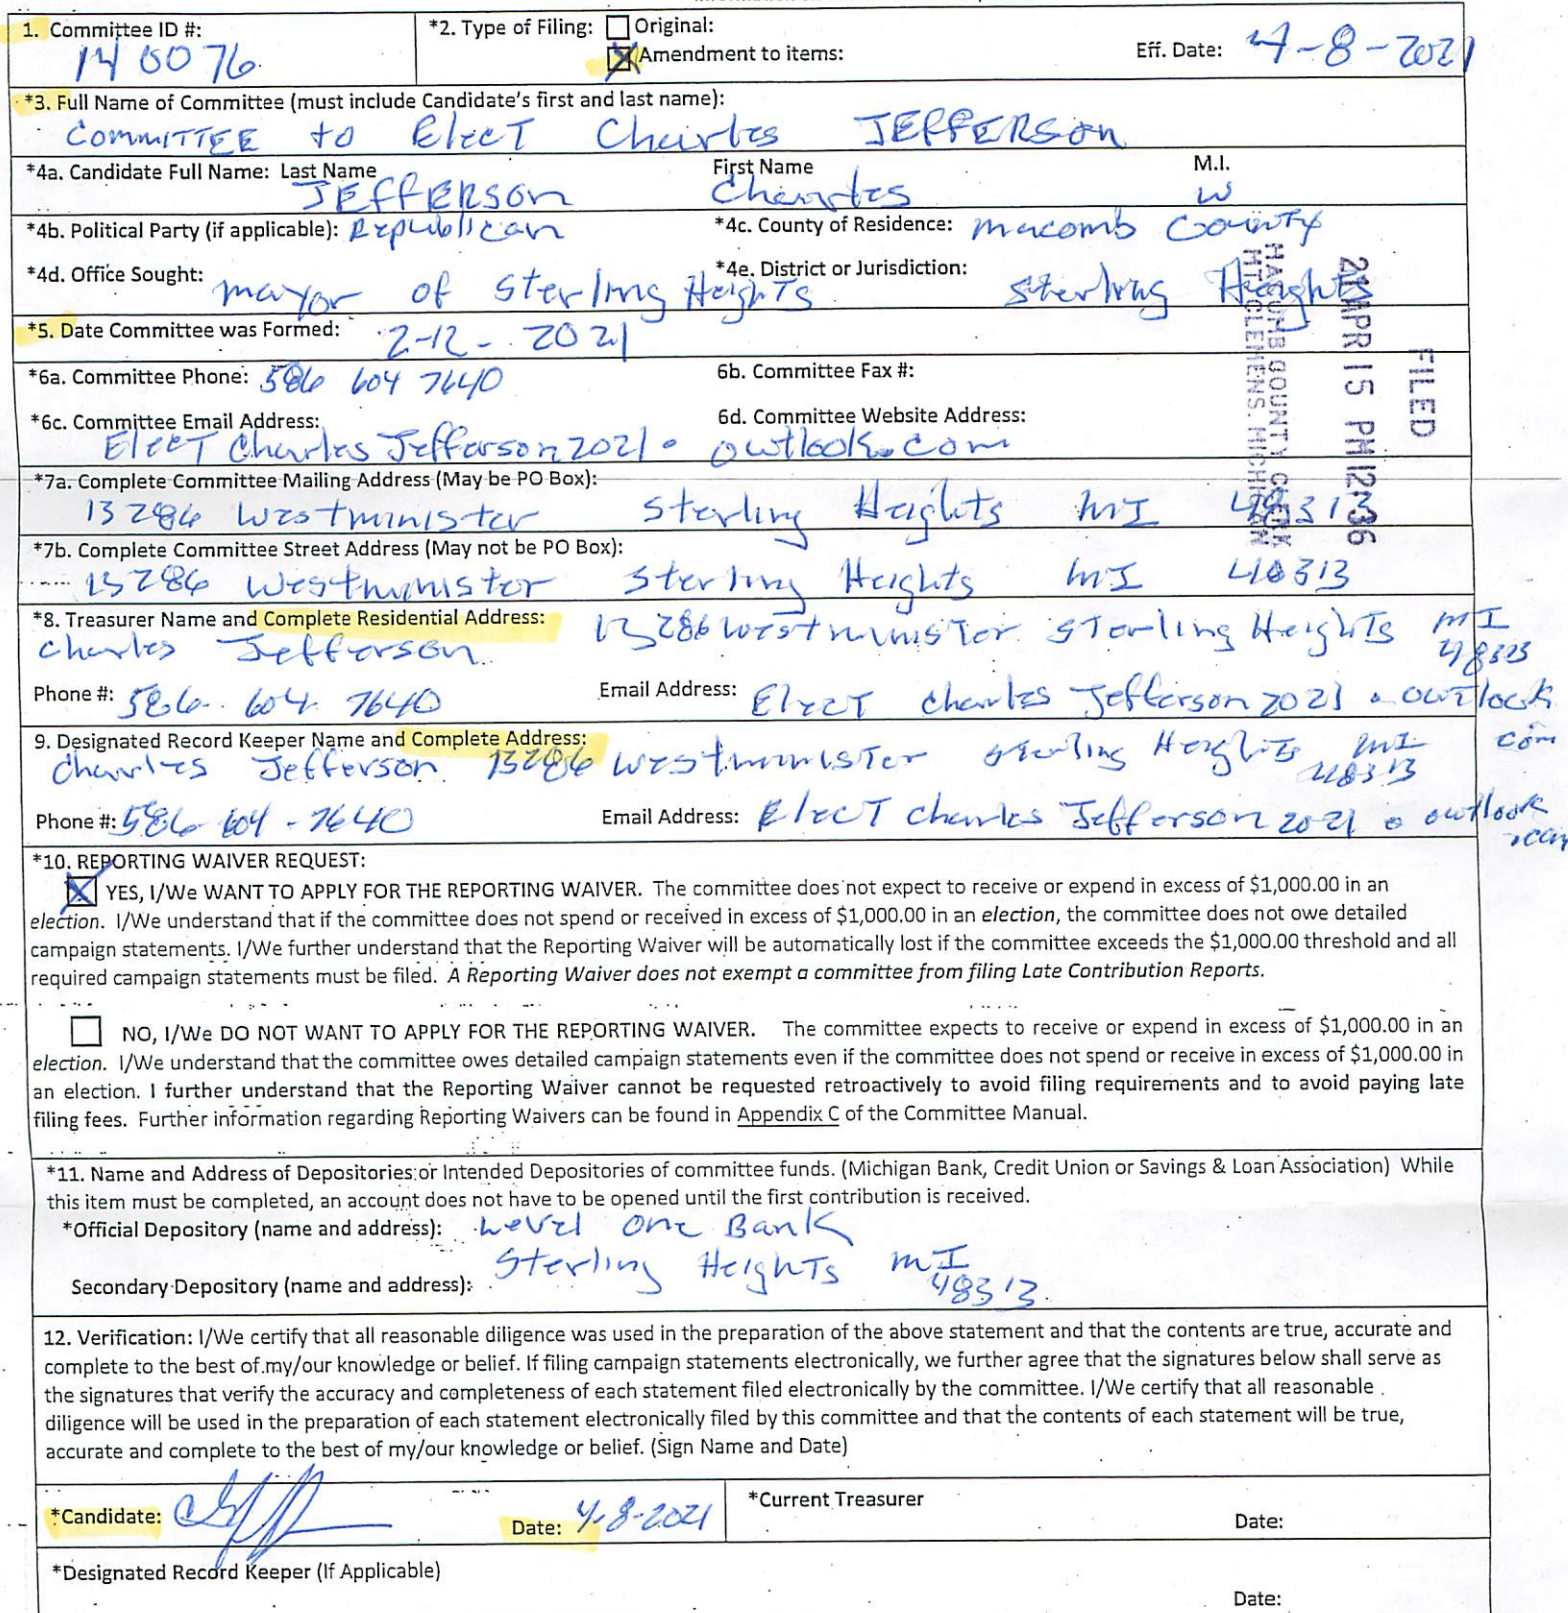 1. Committee ID #:
140076
*2. Type of Filing: Original:
Amendment to items:
Eff. Date: 4-8-2021
*3. Full Name of Committee (must include Candidate's first and last name):
COMMITTEE to Elect Charles JEFFERSON
*4a. Candidate Full Name: Last Name First Name M.I.
JEFFERSON Charles W
*4b. Political Party (if applicable): Republican *4c. County of Residence: Macomb County
*4d. Office Sought: mayor of Sterling Heights *4e. District or Jurisdiction: Sterling Heights
*5. Date Committee was Formed: 2-12-2021
*6a. Committee Phone: 586 604 7640 6b. Committee Fax #:
*6c. Committee Email Address: 6d. Committee Website Address:
Elect Charles Jefferson 2021 • outlook.com
FILED
21 APR 15 PM 12:36
MACOMB COUNTY CLERK
MT. CLEMENS, MICHIGAN
*7a. Complete Committee Mailing Address (May be PO Box):
13286 Westminister Sterling Heights MI 48313
*7b. Complete Committee Street Address (May not be PO Box):
13286 Westminister Sterling Heights MI 48313
*8. Treasurer Name and Complete Residential Address: 13286 Westminister Sterling Heights MI
Charles Jefferson 48313
Phone #: 586-604 7640 Email Address: Elect Charles Jefferson 2021 • outlook
com
9. Designated Record Keeper Name and Complete Address:
Charles Jefferson 13286 Westminister Sterling Heights MI 48313
Phone #: 586-604-7640 Email Address: Elect Charles Jefferson 2021 @ outlook
.com
*10. REPORTING WAIVER REQUEST:
YES, I/We WANT TO APPLY FOR THE REPORTING WAIVER. The committee does not expect to receive or expend in excess of $1,000.00 in an
election. I/We understand that if the committee does not spend or received in excess of $1,000.00 in an election, the committee does not owe detailed
campaign statements. I/We further understand that the Reporting Waiver will be automatically lost if the committee exceeds the $1,000.00 threshold and all
required campaign statements must be filed. A Reporting Waiver does not exempt a committee from filing Late Contribution Reports.
NO, I/We DO NOT WANT TO APPLY FOR THE REPORTING WAIVER. The committee expects to receive or expend in excess of $1,000.00 in an
election. I/We understand that the committee owes detailed campaign statements even if the committee does not spend or receive in excess of $1,000.00 in
an election. I further understand that the Reporting Waiver cannot be requested retroactively to avoid filing requirements and to avoid paying late
filing fees. Further information regarding Reporting Waivers can be found in Appendix C of the Committee Manual.
*11. Name and Address of Depositories or Intended Depositories of committee funds. (Michigan Bank, Credit Union or Savings & Loan Association) While
this item must be completed, an account does not have to be opened until the first contribution is received.
*Official Depository (name and address): Level One Bank
Sterling Heights MI
Secondary Depository (name and address): 48313
12. Verification: I/We certify that all reasonable diligence was used in the preparation of the above statement and that the contents are true, accurate and
complete to the best of my/our knowledge or belief. If filing campaign statements electronically, we further agree that the signatures below shall serve as
the signatures that verify the accuracy and completeness of each statement filed electronically by the committee. I/We certify that all reasonable
diligence will be used in the preparation of each statement electronically filed by this committee and that the contents of each statement will be true,
accurate and complete to the best of my/our knowledge or belief. (Sign Name and Date)
*Candidate: Date: 4-8-2021
*Current Treasurer
Date:
*Designated Record Keeper (If Applicable)
Date: